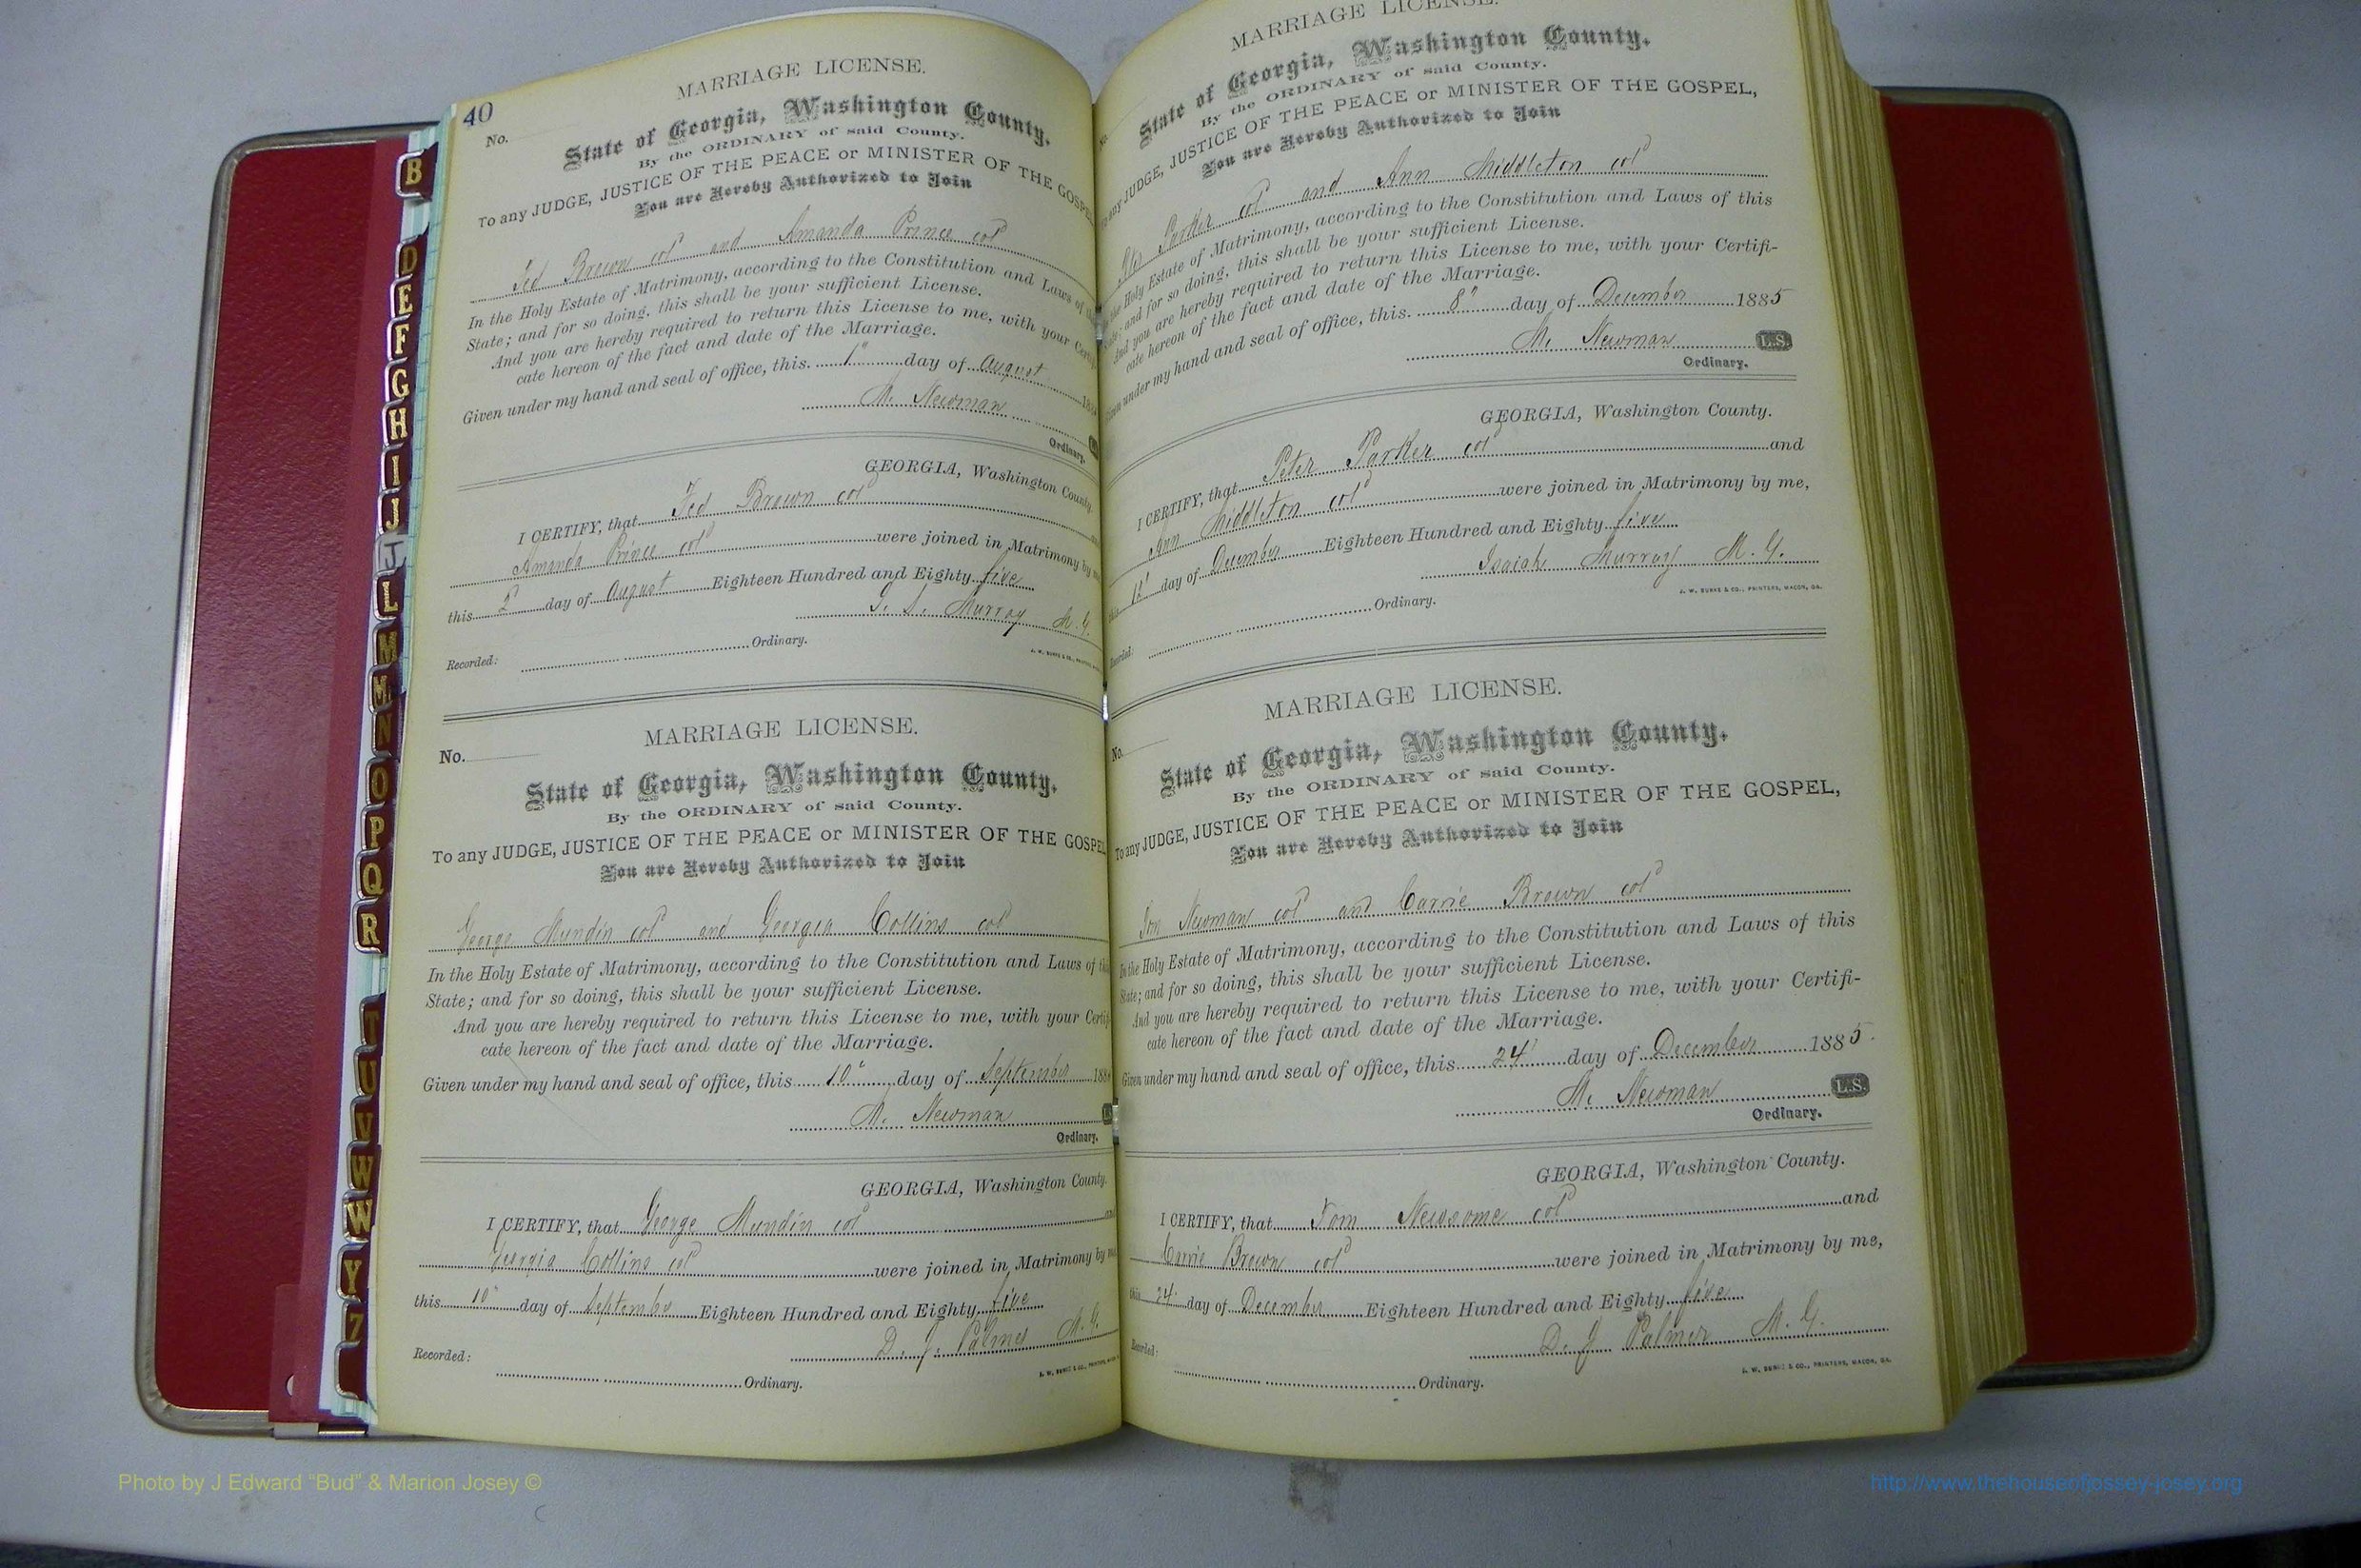 40
MARRIAGE LICENSE.
No.
State of Georgia, Washington County.
By the ORDINARY of said County.
To any JUDGE, JUSTICE OF THE PEACE or MINISTER OF THE GOSPEL
You are Hereby Authorized to Join
Brown col and Amanda Prince col
In the Holy Estate of Matrimony, according to the Constitution and Laws of
State; and for so doing, this shall be your sufficient License.
And you are hereby required to return this License to me, with your Certi
cate hereon of the fact and date of the Marriage.
Given under my hand and seal of office, this 1" day of August 188
M. Newman
Ordinary.
GEORGIA, Washington County.
I CERTIFY, that Brown col
Amanda Prince col were joined in Matrimony by
this 2 day of August Eighteen Hundred and Eighty five
Murray M. G.
Recorded: Ordinary.
MARRIAGE LICENSE.
No.
State of Georgia, Washington County.
By the ORDINARY of said County.
To any JUDGE, JUSTICE OF THE PEACE or MINISTER OF THE GOSPEL
You are Hereby Authorized to Join
George Mundin col and Georgia Collins col
In the Holy Estate of Matrimony, according to the Constitution and Laws of
State; and for so doing, this shall be your sufficient License.
And you are hereby required to return this License to me, with your Certi
cate hereon of the fact and date of the Marriage.
Given under my hand and seal of office, this 10" day of September 188
M. Newman
Ordinary.
GEORGIA, Washington County.
I CERTIFY, that George Mundin col
Georgia Collins col were joined in Matrimony by
this 10" day of September Eighteen Hundred and Eighty five
D. J. Palmer M. G.
Recorded: Ordinary.
MARRIAGE LICENSE.
No.
State of Georgia, Washington County.
By the ORDINARY of said County.
To any JUDGE, JUSTICE OF THE PEACE or MINISTER OF THE GOSPEL,
You are Hereby Authorized to Join
Parker col and Ann Middleton col
the Holy Estate of Matrimony, according to the Constitution and Laws of this
State; and for so doing, this shall be your sufficient License.
And you are hereby required to return this License to me, with your Certifi-
cate hereon of the fact and date of the Marriage.
Given under my hand and seal of office, this 8" day of December 1885
M. Newman L.S.
Ordinary.
GEORGIA, Washington County.
I CERTIFY, that Peter Parker col and
Ann Middleton col were joined in Matrimony by me,
this day of December Eighteen Hundred and Eighty five
Isaiah Murray M. G.
J. W. BURKE & CO., PRINTERS, MACON, GA.
Recorded: Ordinary.
MARRIAGE LICENSE.
No.
State of Georgia, Washington County.
By the ORDINARY of said County.
To any JUDGE, JUSTICE OF THE PEACE or MINISTER OF THE GOSPEL,
You are Hereby Authorized to Join
Newman col and Carrie Brown col
In the Holy Estate of Matrimony, according to the Constitution and Laws of this
State; and for so doing, this shall be your sufficient License.
And you are hereby required to return this License to me, with your Certifi-
cate hereon of the fact and date of the Marriage.
Given under my hand and seal of office, this 24 day of December 1885.
M. Newman L.S.
Ordinary.
GEORGIA, Washington County.
I CERTIFY, that Tom Newsome col and
Carrie Brown col were joined in Matrimony by me,
this 24 day of December Eighteen Hundred and Eighty five
D. J. Palmer M. G.
J. W. BURKE & CO., PRINTERS, MACON, GA.
Recorded: Ordinary.
B
D
E
F
G
H
I
J
J
L
M
M
N
O
P
Q
R
T
U
V
W
W
Y
Z
Photo by J Edward “Bud” & Marion Josey ©
http://www.thehouseofjossey-josey.org